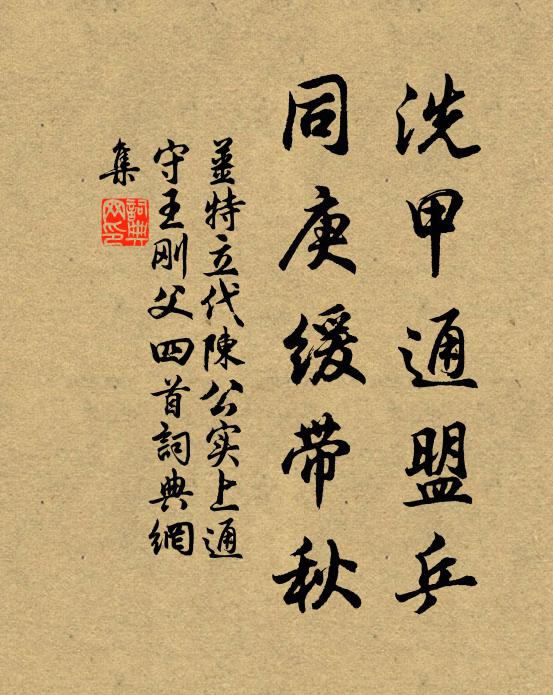 洗甲通盟乒
同庚缓带秋
薑特立代陳公实上通
守王刚父四首詞典網
集
詞典网印